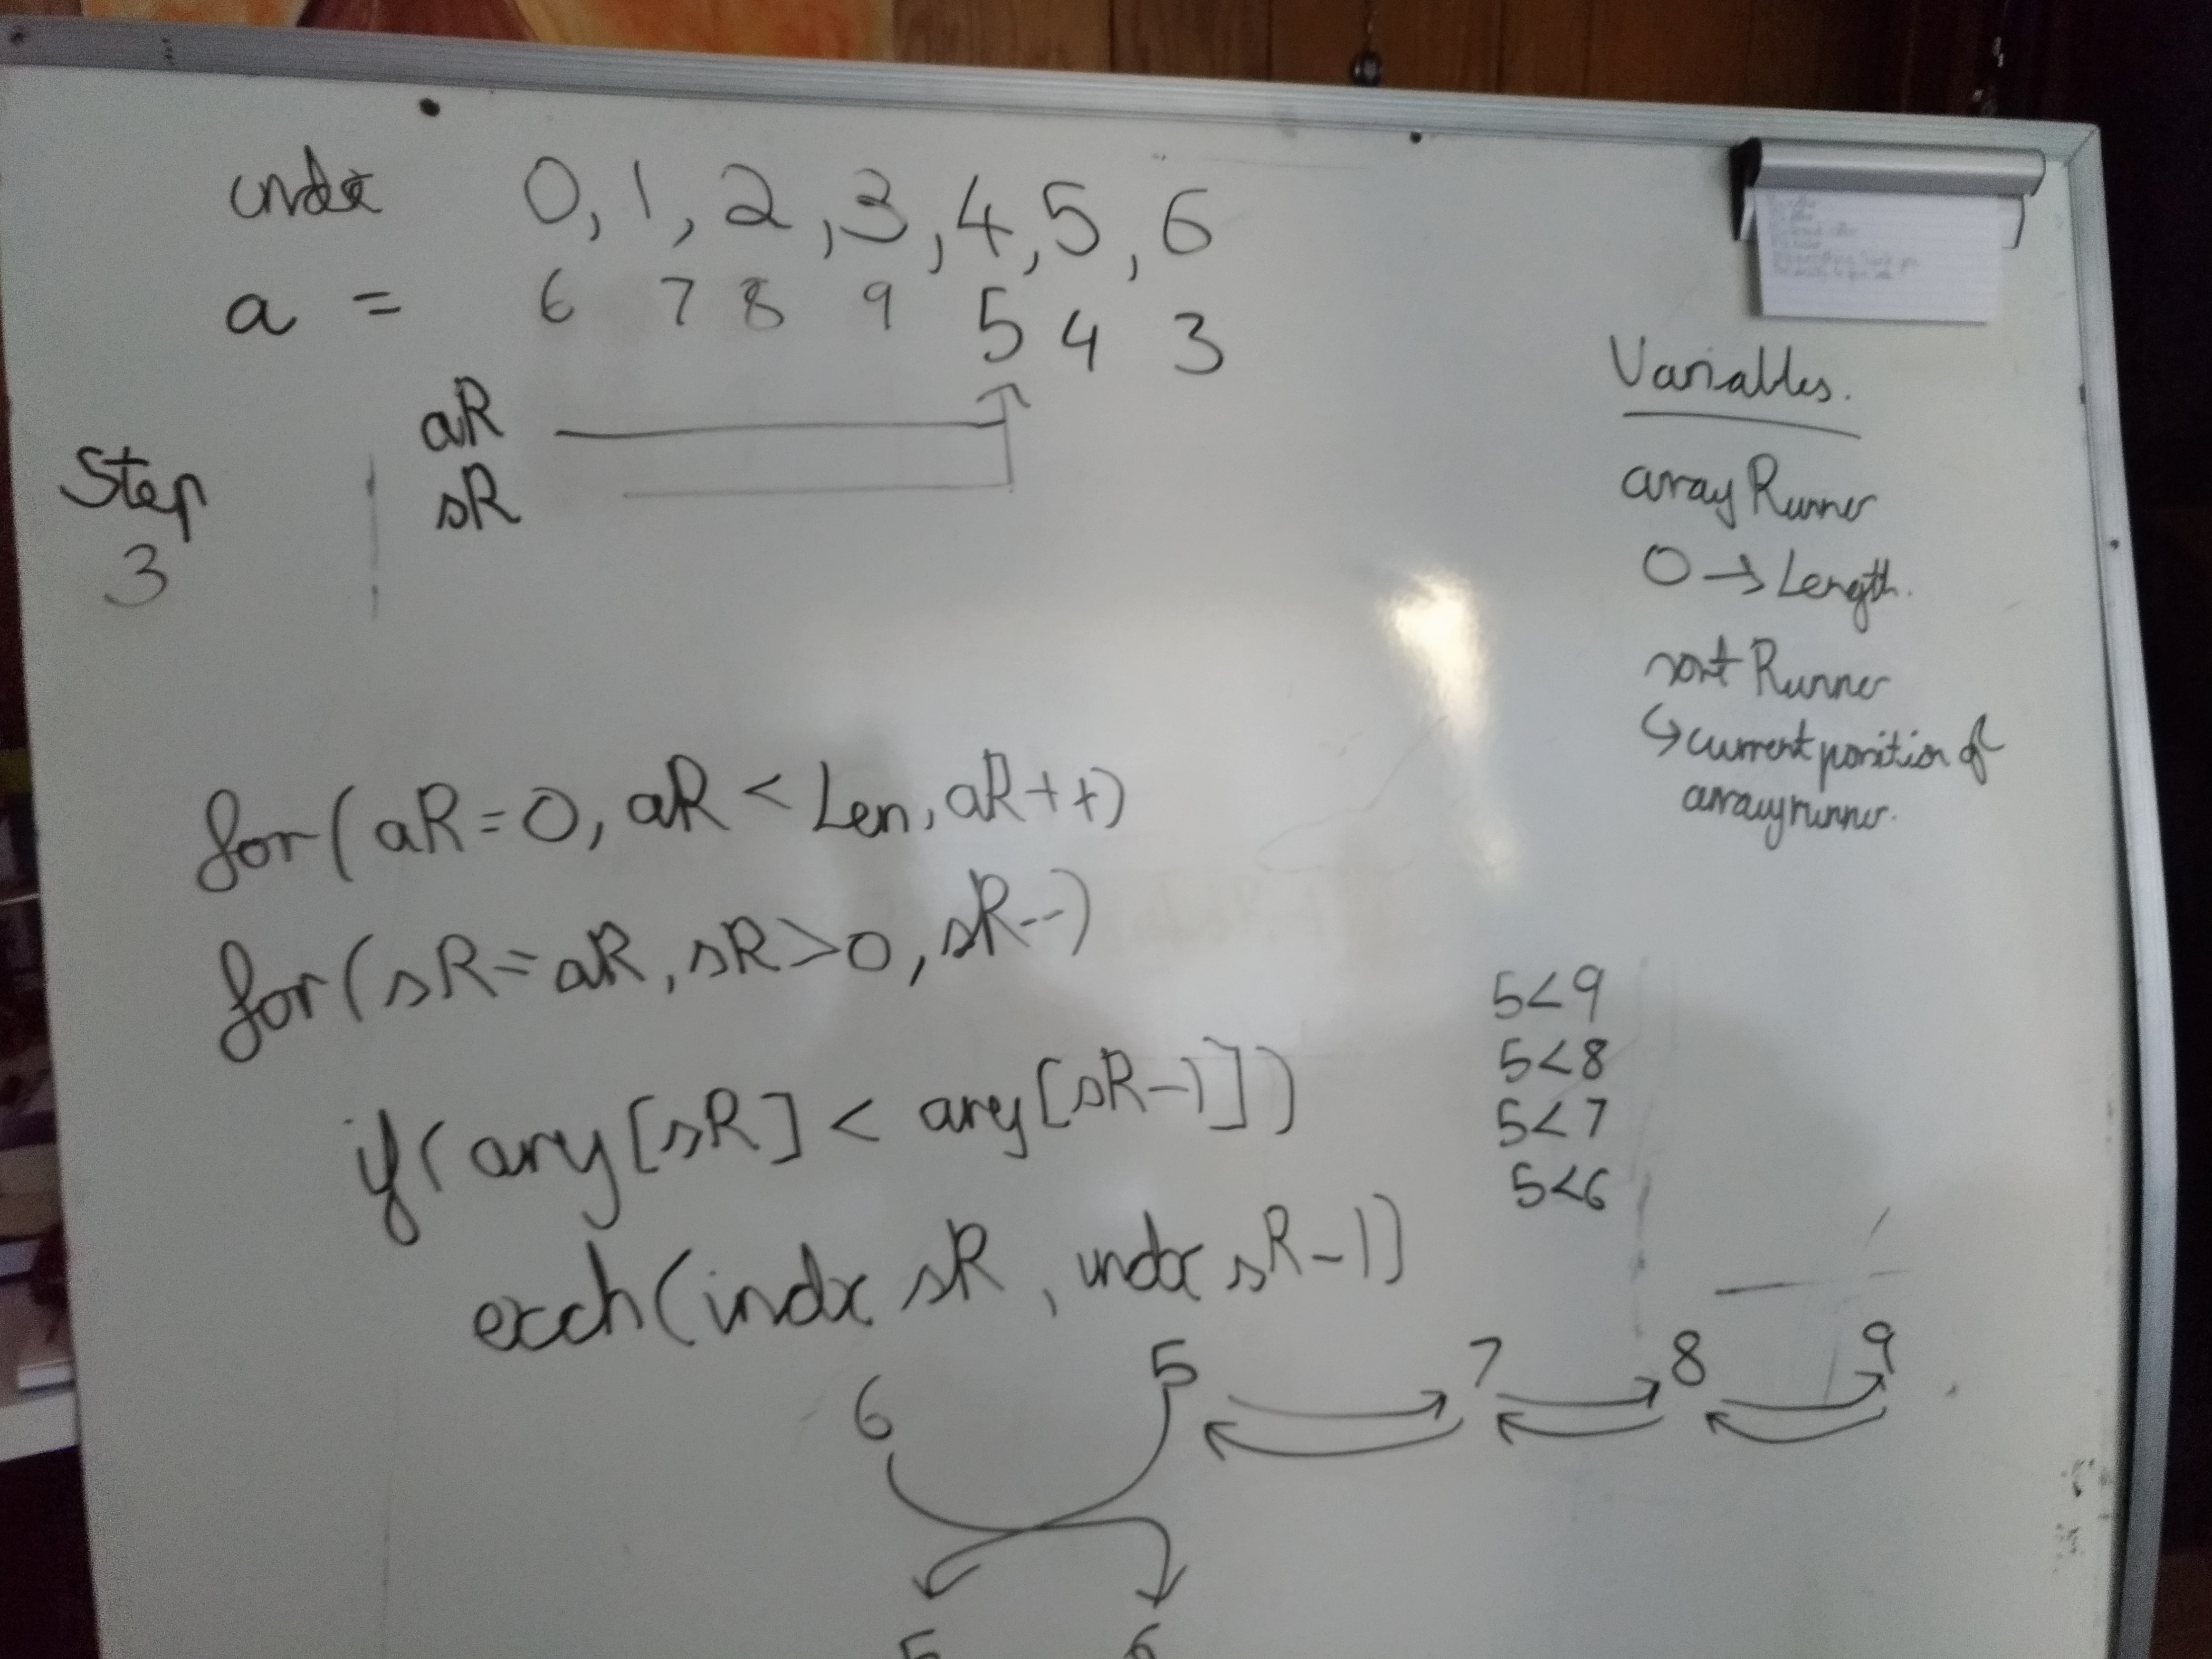 indx 0, 1, 2, 3, 4, 5, 6
a = 6 7 8 9 5 4 3
aR
sR
Step
3
Variables.
array Runner
0 → Length.
sort Runner
↳ current position of
arrayrunner.
for(aR=0, aR < Len, aR++)
for(sR=aR, sR>0, sR--)
if(arry[sR] < arry[sR-1])
exch(indx sR, indx sR-1)
5<9
5<8
5<7
5<6
6 5 7 8 9
5 6